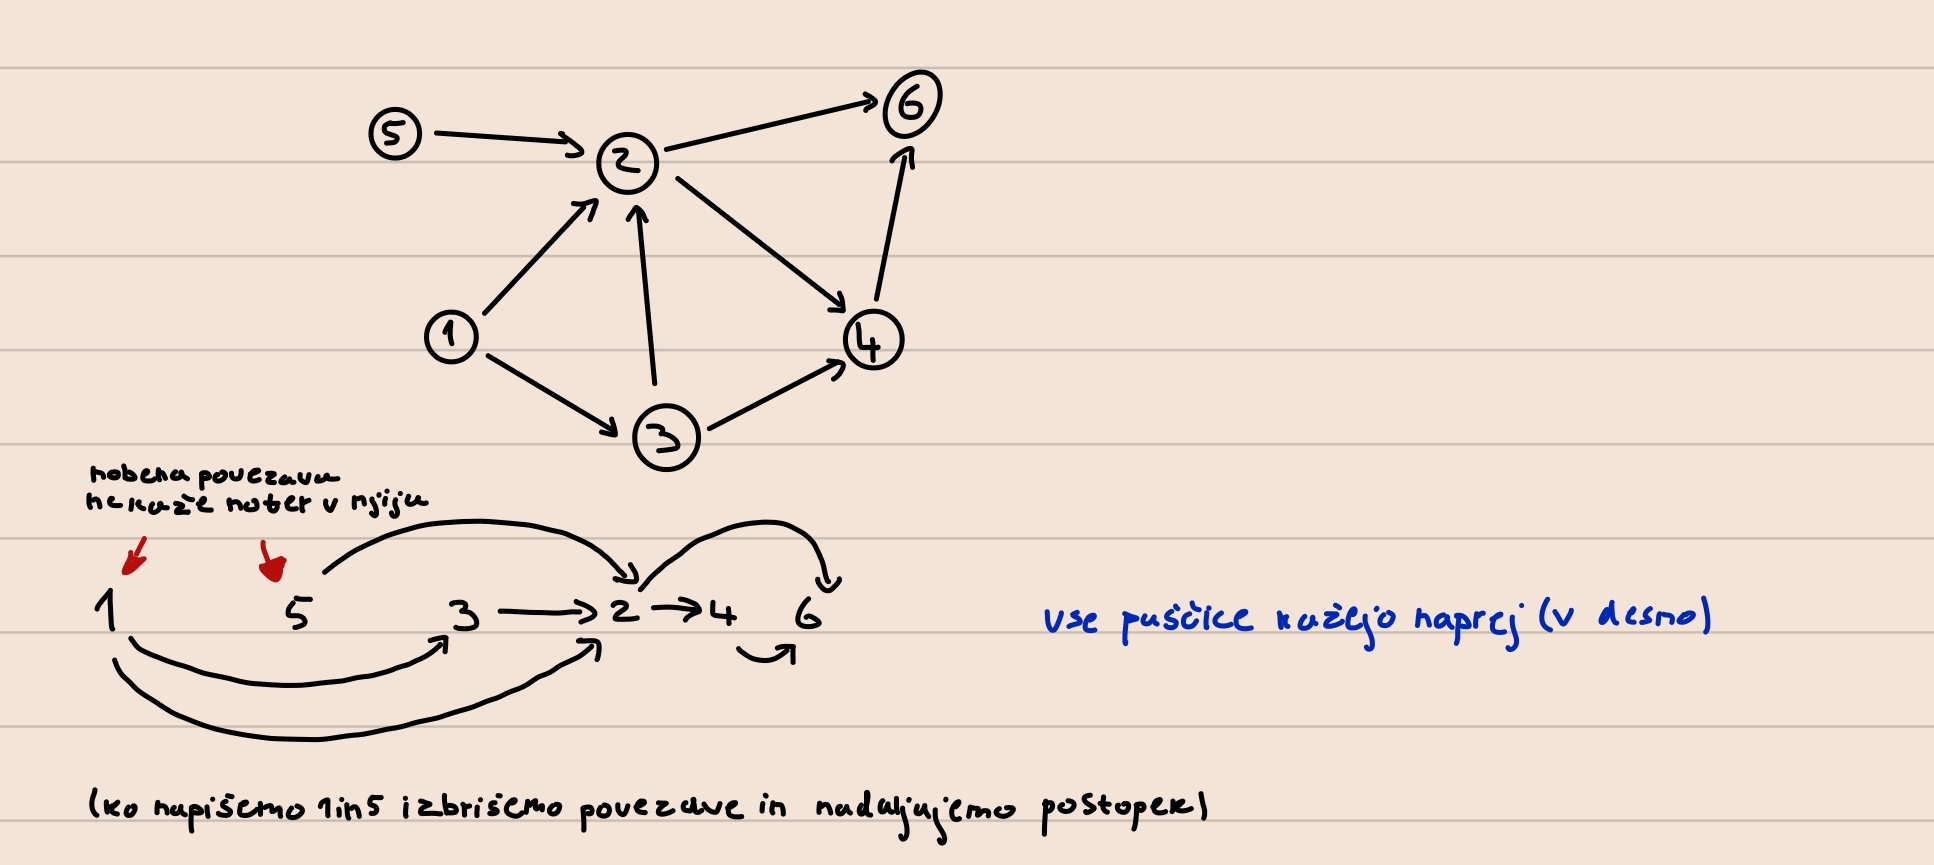 6
5
2
1
4
3
nobena povezava
ne kaže noter v njiju
1 5 3 2 4 6
vse puščice kažejo naprej (v desno)
(ko napišemo 1 in 5 izbrišemo povezave in nadaljujemo postopek)